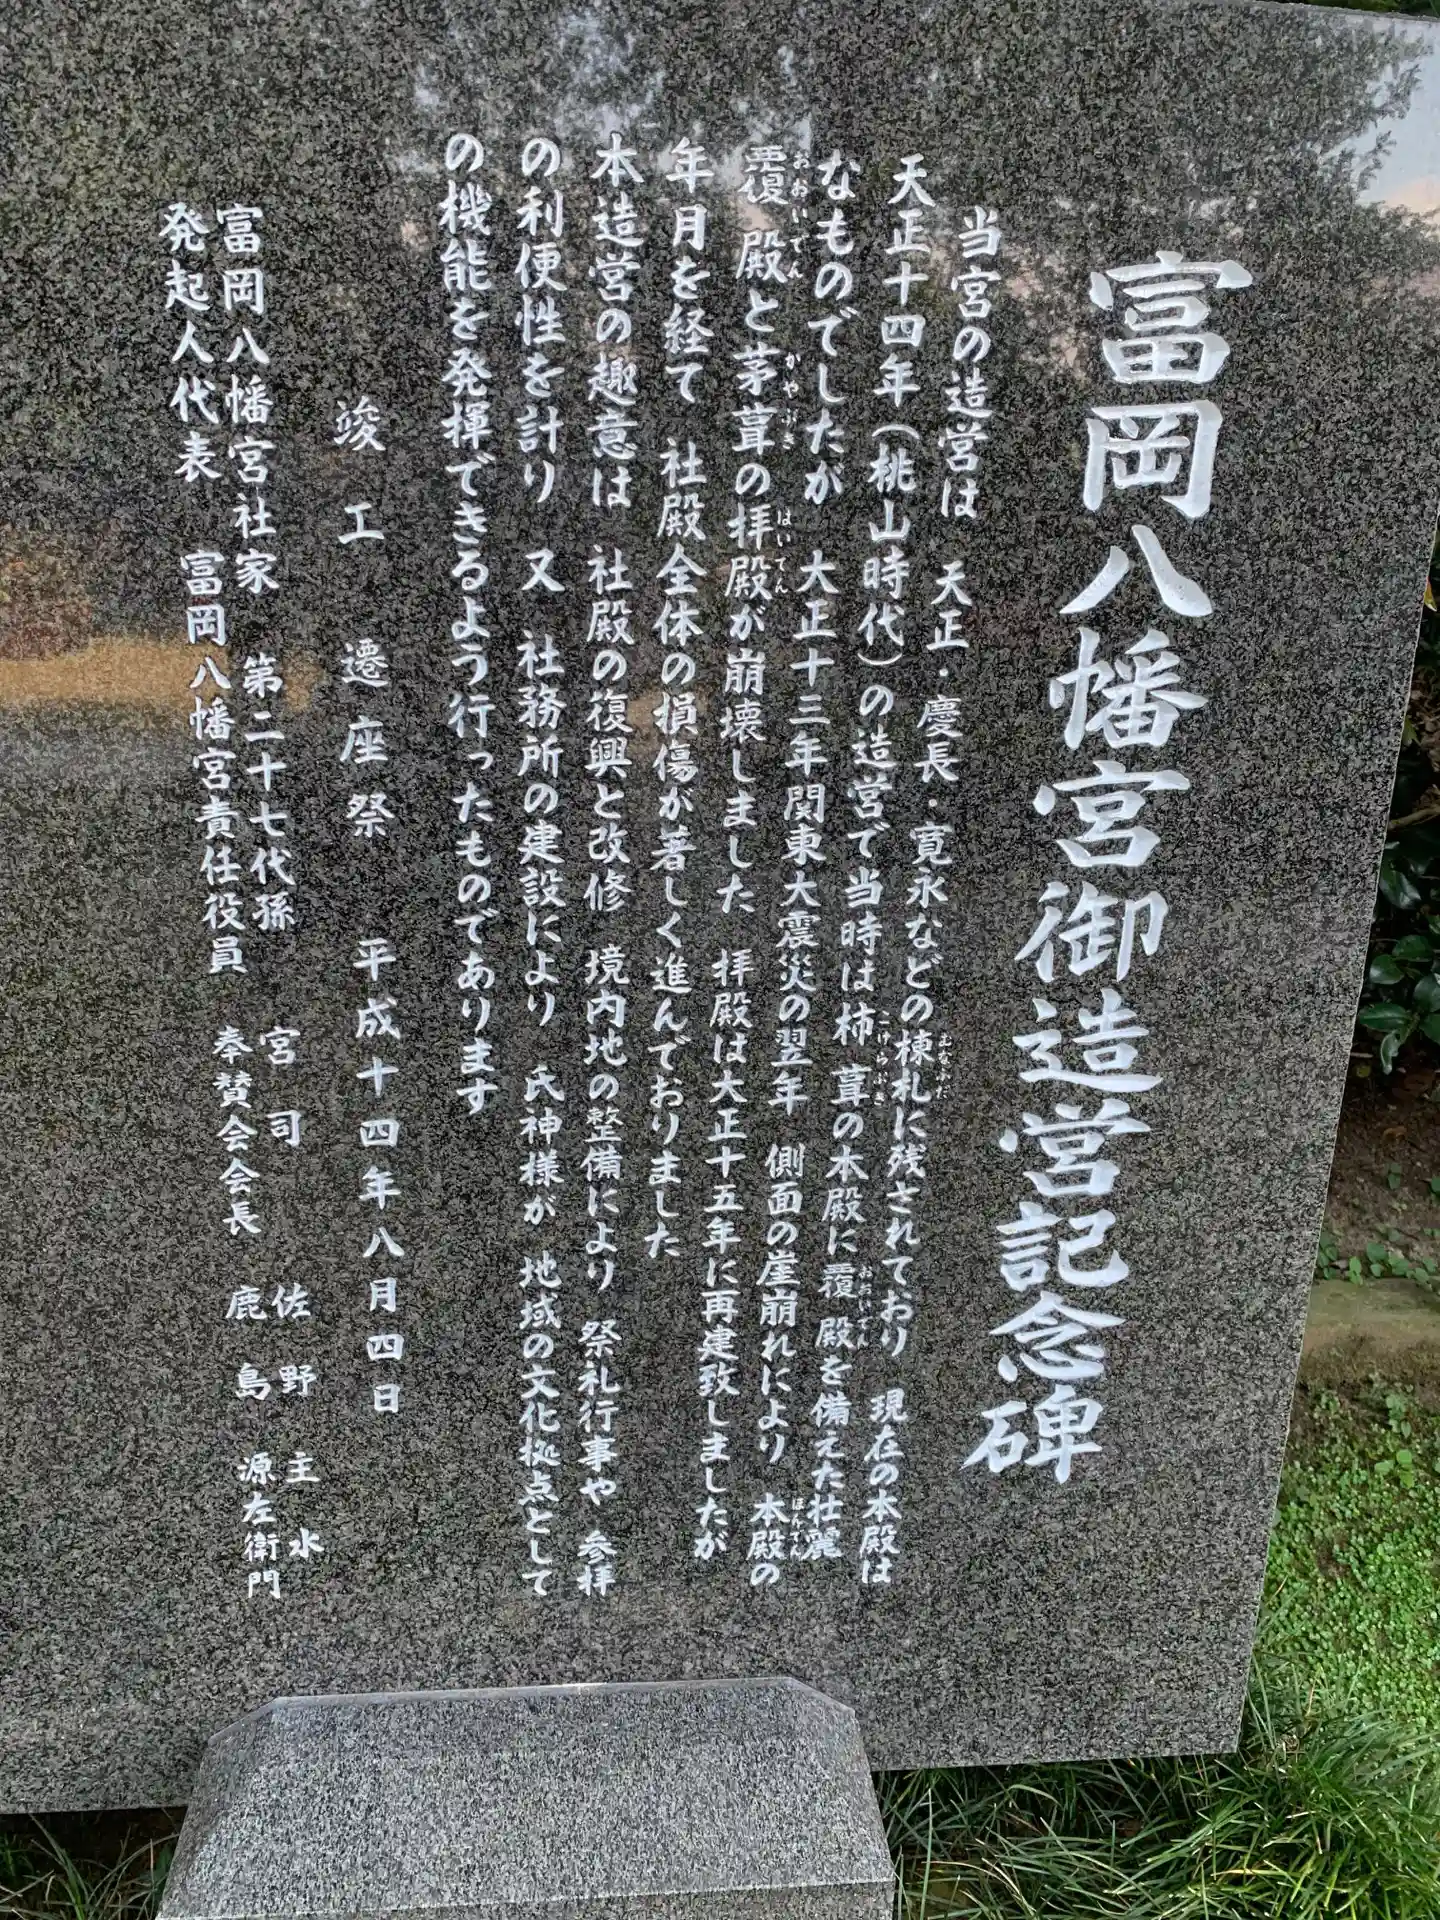 富岡八幡宮御造営記念碑
当宮の造営は 天正・慶長・寛永などの棟札に残されており 現在の本殿は
天正十四年(桃山時代)の造営で当時は柿葺の本殿に覆殿を備えた壮麗
なものでしたが 大正十三年関東大震災の翌年 側面の崖崩れにより 本殿の
覆殿と茅葺の拝殿が崩壊しました 拝殿は大正十五年に再建致しましたが
年月を経て 社殿全体の損傷が著しく進んでおりました
本造営の趣意は 社殿の復興と改修 境内地の整備により 祭礼行事や 参拝
の利便性を計り 又 社務所の建設により 氏神様が 地域の文化拠点として
の機能を発揮できるよう行ったものであります
竣工 遷座祭 平成十四年八月四日
富岡八幡宮社家 第二十七代孫 宮司 佐野 主水
発起人代表 富岡八幡宮責任役員 奉賛会会長 鹿島 源左衛門